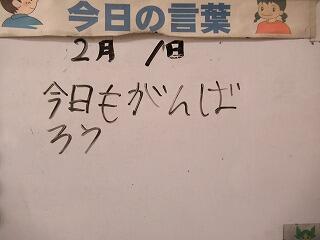 今日の言葉
2月 1日
今日もがんば
ろう